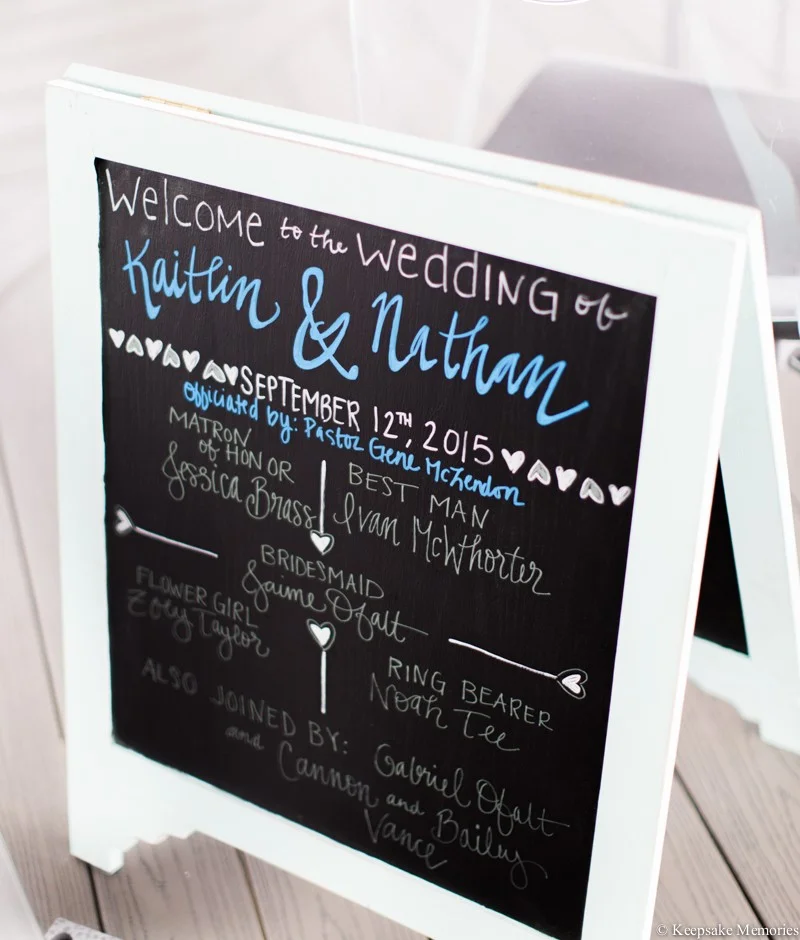 Welcome to the Wedding of
Kaitlin & Nathan
SEPTEMBER 12TH, 2015
Officiated by: Pastor Gene McLendon
MATRON
of HONOR
Jessica Brass
BEST MAN
Ivan McWhorter
BRIDESMAID
Jaime Ofalt
FLOWER GIRL
Zoey Taylor
RING BEARER
Noah Tee
ALSO JOINED BY: Gabriel Ofalt
and Cannon and Bailey
Vance
© Keepsake Memories